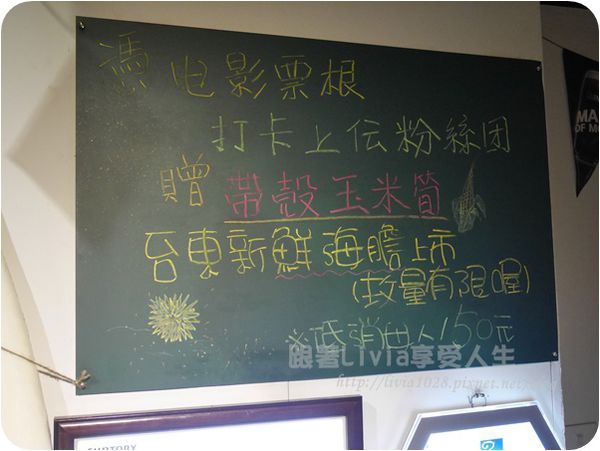 憑电影票根
打卡上伝粉絲团
贈 帶殼玉米筍
台東新鮮海膽上市
(数量有限喔)
※低消每人150元
跟著Livia享受人生
http://livia1028.pixnet.net/
SUNTORY